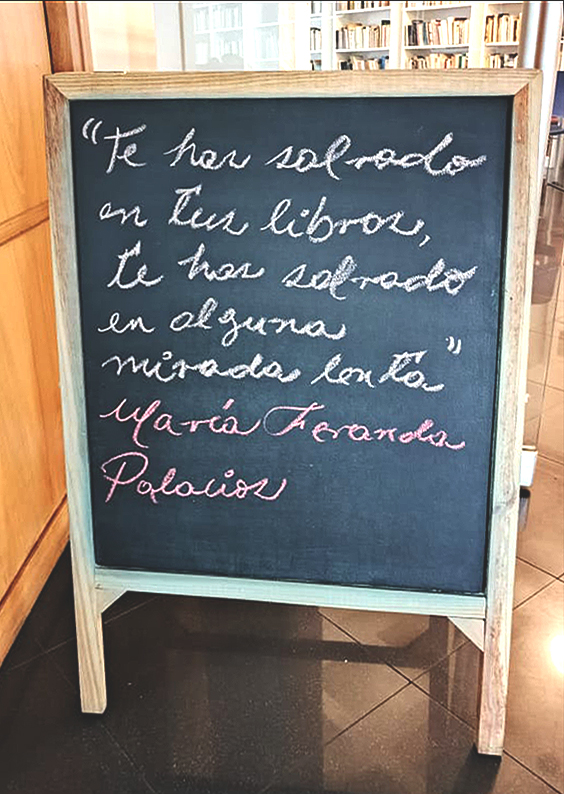 “Te has salvado
en tus libros,
te has salvado
en alguna
mirada lenta”
María Feranda
Palacios